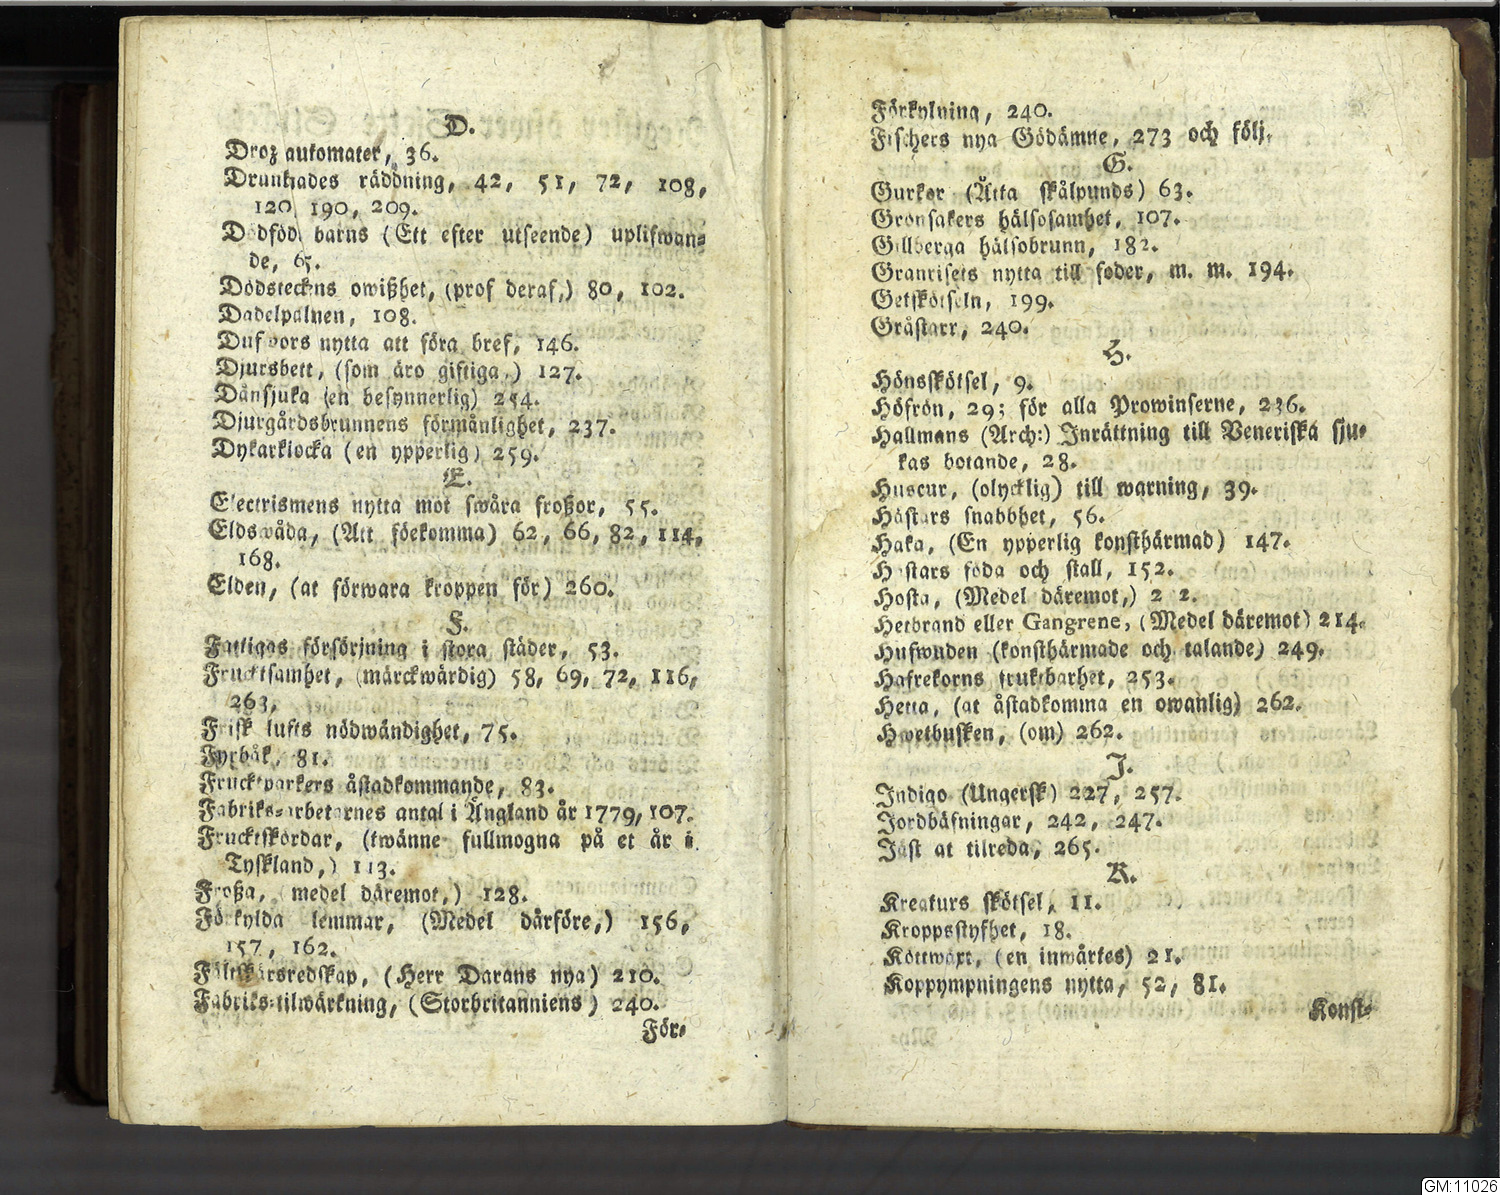 D.
Droz automater, 36.
Drunknades räddning, 42, 51, 72, 108,
120, 190, 209.
Dödföd barns (Ett efter utseende) uplifwan-
de, 65.
Dödsteckens owißhet, (prof deraf,) 80, 102.
Dadelpalnen, 108.
Dufwors nytta att föra bref, 146.
Djursbett, (som äro giftiga,) 127.
Dånsjuka (en besynnerlig) 254.
Djurgårdsbrunnens förmånlighet, 237.
Dykarklocka (en ypperlig) 259.
E.
Electrismens nytta mot swåra froßor, 55.
Eldswåda, (Att föekomma) 62, 66, 82, 114,
168.
Elden, (at förwara kroppen för) 260.
F.
Fattigas försörjning i stora städer, 53.
Frucktsamhet, (märckwärdig) 58, 69, 72, 116,
263,
Frisk lufts nödwändighet, 75.
Fyrbåk, 81.
Frucktparkers åstadkommande, 83.
Fabriks-arbetarnes antal i Ängland år 1779, 107.
Frucktskördar, (twänne fullmogna på et år i
Tyskland,) 113.
Froßa, (medel däremot,) 128.
Förkylda lemmar, (Medel därföre,) 156,
157, 162.
Fältskärsredskap, (Herr Darans nya) 210.
Fabriks-tilwärkning, (Storbritanniens) 240.
För-
Förkylning, 240.
Fischers nya Gödämne, 273 och följ.
G.
Gurkor (Åtta skålpunds) 63.
Grönsakers hälsosamhet, 107.
Gillberga hälsobrunn, 182.
Granrisets nytta till foder, m. m. 194.
Getskötseln, 199.
Gråstarr, 240.
H.
Hönsskötsel, 9.
Höfrön, 29; för alla Prowinserne, 236.
Hallmans (Arch:) Inrättning till Veneriska sju-
kas botande, 28.
Huscur, (olycklig) till warning, 39.
Hästars snabbhet, 56.
Haka, (En ypperlig konsthärmad) 147.
Hästars föda och stall, 152.
Hosta, (Medel däremot,)
Hetbrand eller Gangrene, (Medel däremot) 214.
Hufwuden (konsthärmade och talande) 249.
Hafrekorns fruktbarhet, 253.
Hetta, (at åstadkomma en owanlig) 262.
Hwetbusken, (om) 262.
I.
Indigo (Ungersk) 227, 257.
Jordbäfningar, 242, 247.
Jäst at tilreda, 265.
K.
Kreaturs skötsel, 11.
Kroppsstyfhet, 18.
Köttwäxt, (en inwärtes) 21.
Koppympningens nytta, 52, 81.
Konst-
GM:11026